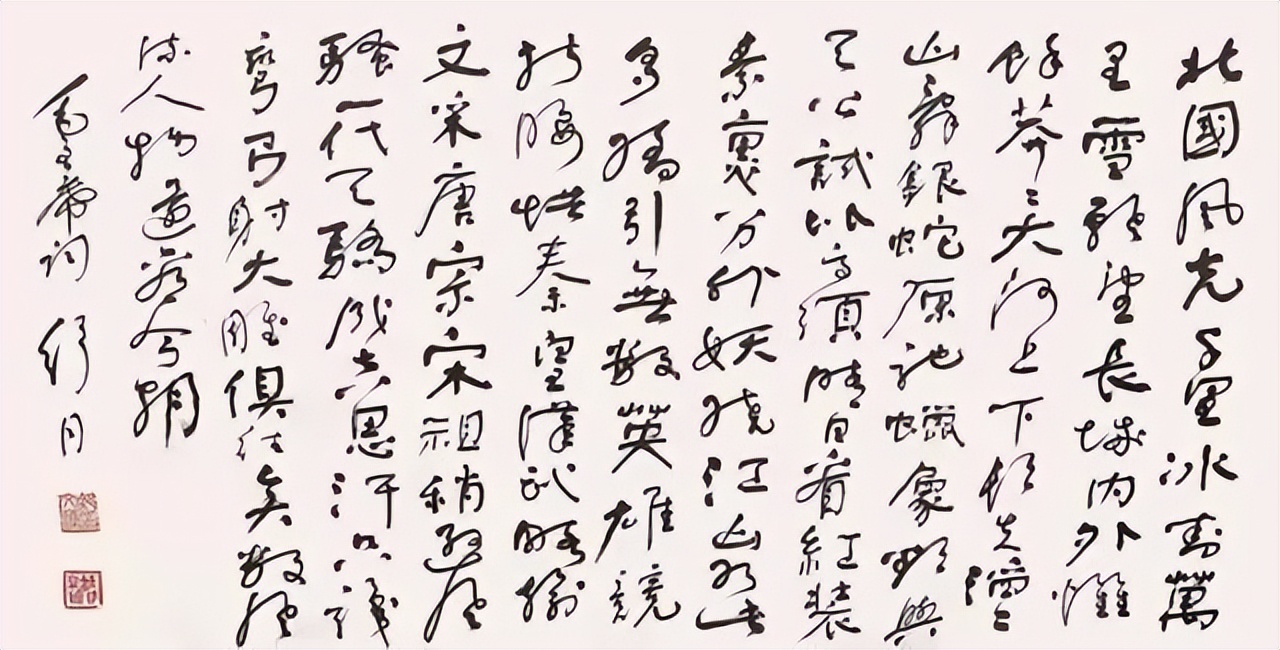 北國風光千里冰封萬
里雪飄望長城内外惟
餘莽〻大河上下頓失滔〻
山舞銀蛇原馳蠟象欲與
天公試比高須晴日看紅裝
素裹分外妖嬈江山如此
多嬌引無數英雄競
折腰惜秦皇漢武略輸
文采唐宗宋祖稍遜風
騷一代天驕成吉思汗只識
彎弓射大雕俱往矣數風
流人物還看今朝
毛主席詞 舒同